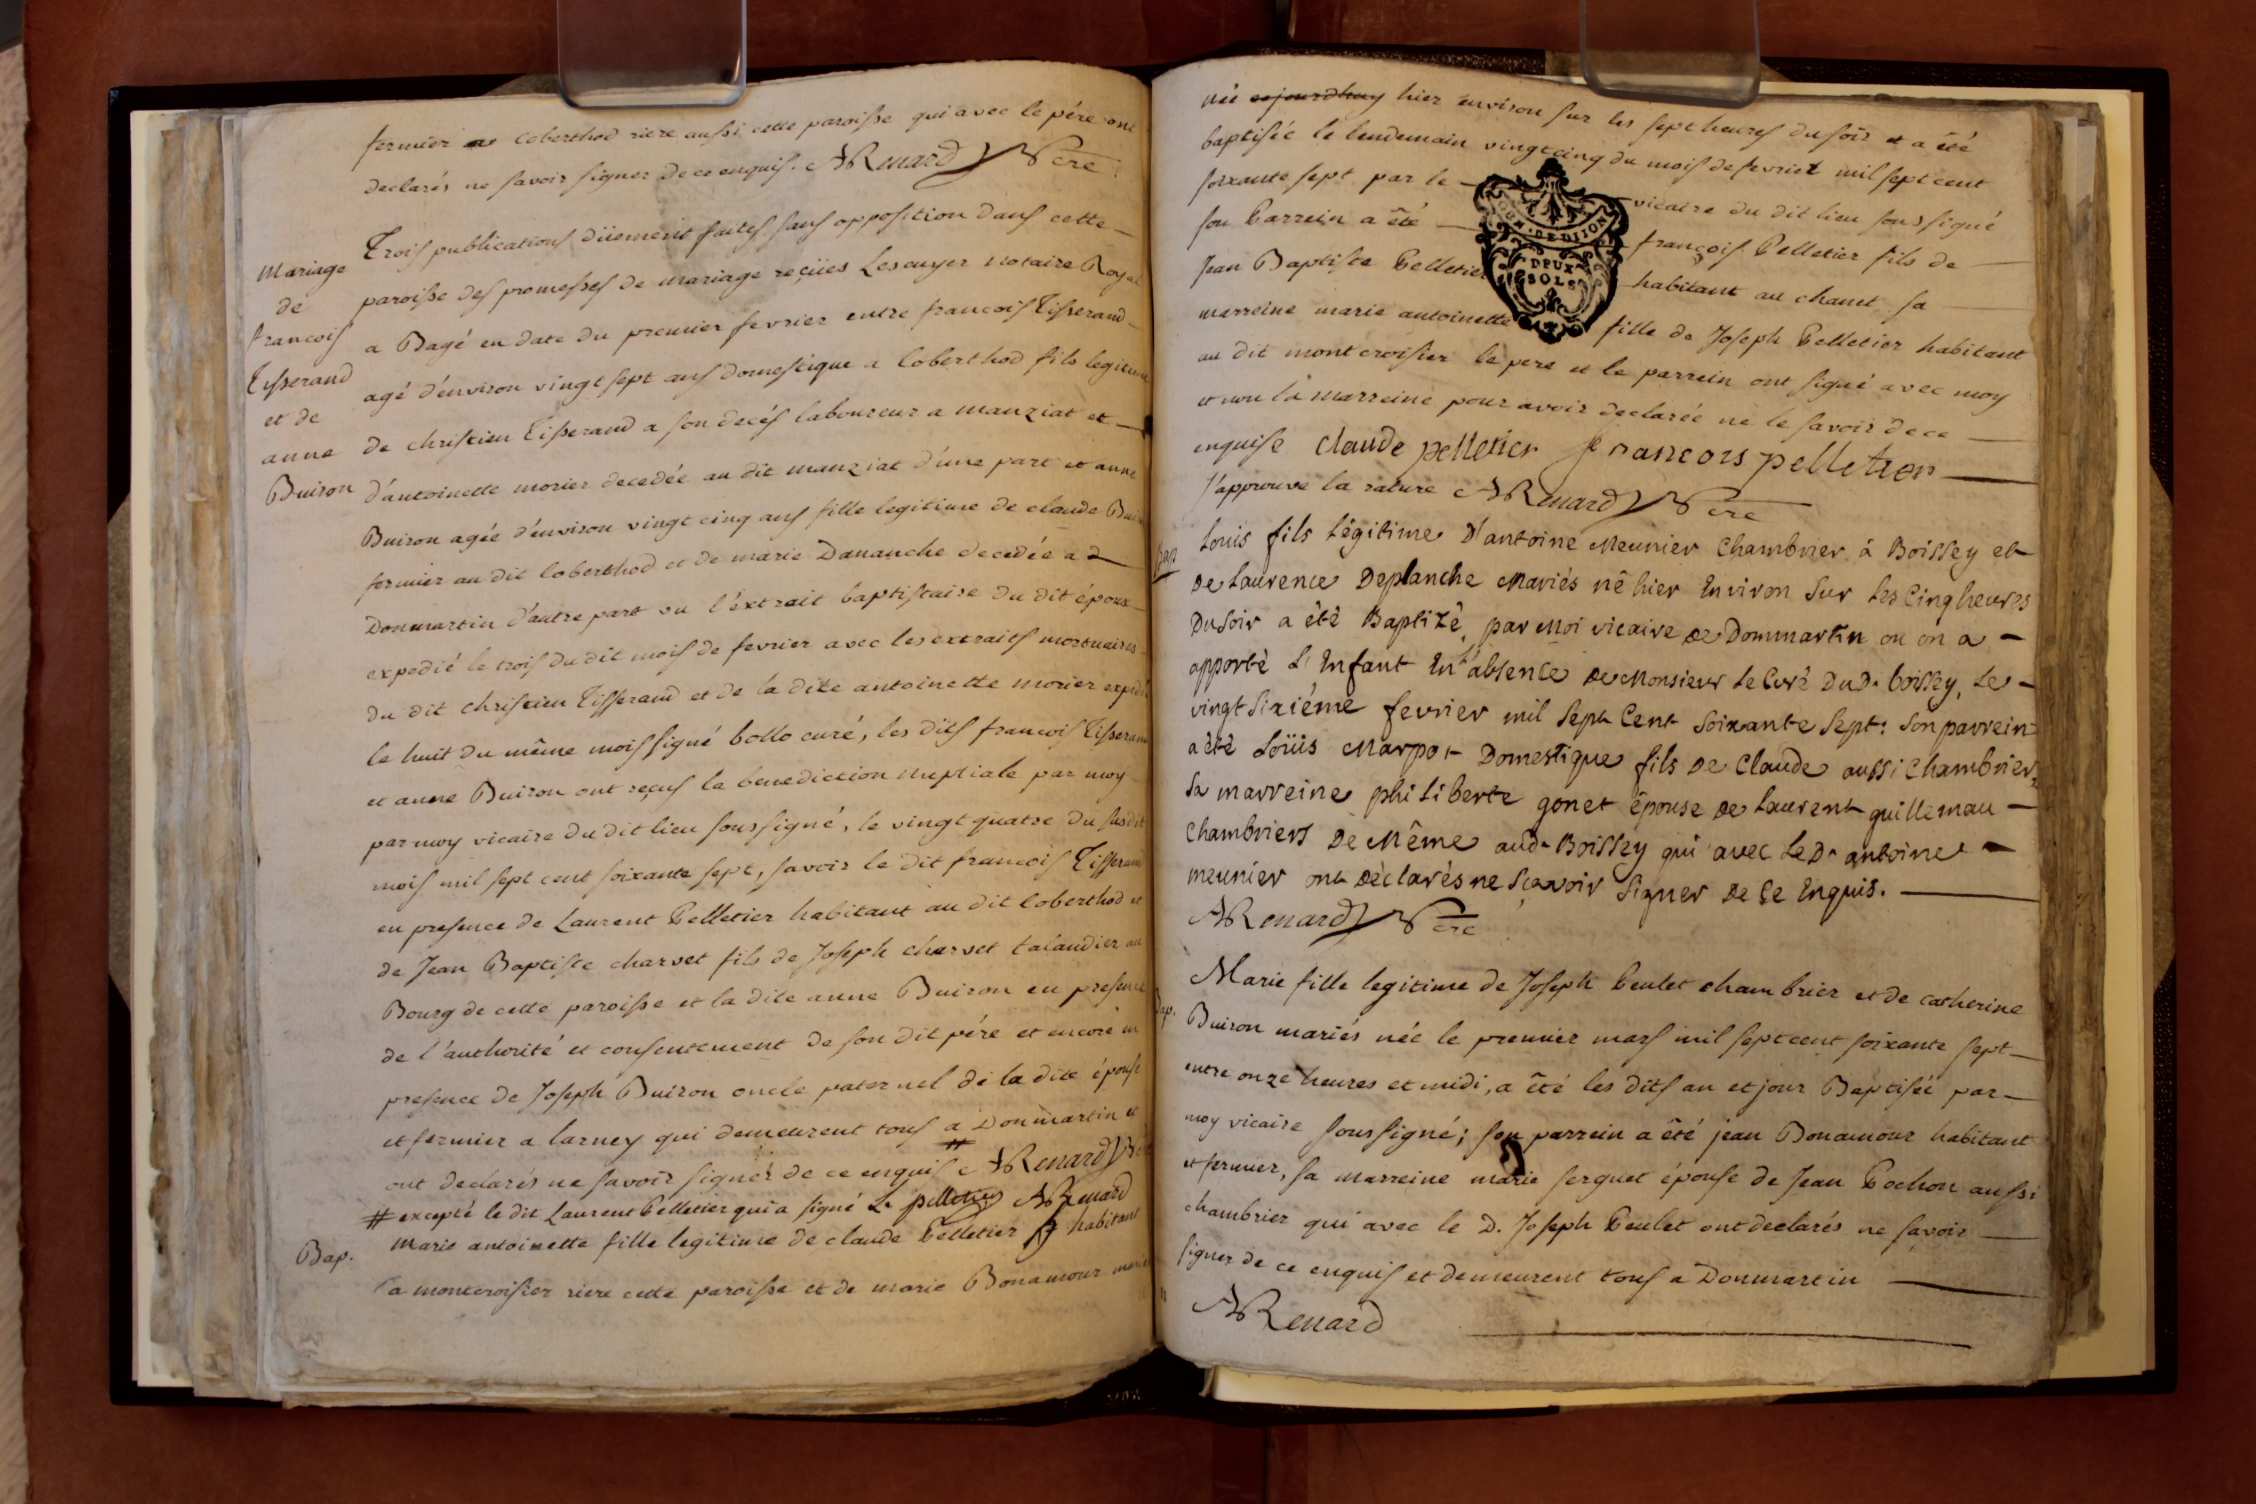 fermier a Coberthod riere aussi cette paroisse qui avec le pére ont
declarés ne savoir signer de ce enquis. ARenard Vcre
Mariage
de
francois
Tisserand
et de
anne
Buiron
Trois publications düement faites sans opposition dans cette
paroisse des promesses de mariage reçües Lescuyer notaire Royal
a Bagé en date du premier fevrier entre francois Tisserand
agé d'environ vingt sept ans domestique a Coberthod fils legitime
de christien Tisserand a son decés laboureur a manziat et
d'antoinette morier decedée au dit manziat d'une part et anne
Buiron agée d'environ vingt cinq ans fille legitime de claude
fermier au dit Coberthod et de marie Dananche decedée a
Donmartin d'autre part vu l'extrait baptistaire du dit époux
expedié le trois du dit mois de fevrier avec les extraits mortuaires
du dit christien Tisserand et de la dite antoinette morier expedié
le huit du même mois signé bollo curé, les dits francois Tisserand
et anne Buiron ont reçus la benediction nuptiale par moy
par moy vicaire du dit lieu soussigné, le vingt quatre du susdit
mois mil sept cent soixante sept, savoir le dit francois Tisserand
en presence de Laurent Pelletier habitant au dit Coberthod et
de Jean Baptiste charvet fils de Joseph charvet talandier au
Bourg de cette paroisse et la dite anne Buiron en presence
de l'authorité et consentement de son dit pére et encore en
presence de Joseph Buiron oncle paternel de la dite épouse
et fermier a larney qui demeurent tous a Donmartin et
ont declarés ne savoir signer de ce enquis # ARenard
# excepté le dit Laurent Pelletier qui a signé L. pelletier ARenard
Bap.
Marie antoinette fille legitime de claude Pelletier habitant
a montcroisier riere cette paroisse et de marie Bonamour mariés
née aujourdhuy hier environ sur les sept heures du soir et a été
baptisée le lendemain vingt cinq du mois de fevrier mil sept cent
soixante sept par le vicaire du dit lieu soussigné
son Parrein a été françois Pelletier fils de
Jean Baptiste Pelletier habitant au chanet sa
marreine marie antoinette fille de Joseph Pelletier habitant
au dit montcroisier le pere et le parrein ont signé avec moy
et non la marreine pour avoir declarée ne le savoir de ce
enquise Claude pelletier francois pelletier
J'approuve la rature ARenard Vcre
GEN. DE DIJON
DEUX
SOLS
Bap
Louis fils Légitime D'antoine Meunier Chambrier à Boissey et
De Laurence Deplanche Mariés né hier Environ Sur Les Cinq heures
Du Soir a été Baptizé, par Moi vicaire De Dommartin ou on a
apporté L'Enfant En l'absence De Monsieur Le Curé Du D. boissey, Le
vingt Sixiéme fevrier mil Sept Cent Soixante Sept: Son parrein
a été Loüis Marpot Domestique fils De Claude aussi Chambrier,
Sa marreine philiberte gonet épouse De Laurent guillemau
Chambriers De Même aud. Boissey qui avec Le D. antoine
meunier ont Déclarés ne Sçavoir Signer De Ce Enquis.
ARenard Vcre
Bap.
Marie fille legitime de Joseph Peulet chambrier et de catherine
Buiron mariés née le premier mars mil sept cent soixante sept
entre onze heures et midi, a été les dits an et jour Baptisée par
moy vicaire soussigné; son parrein a été jean Bonamour habitant
et fermier, sa marreine marie ferguet épouse de Jean Pochon aussi
chambrier qui avec le D. Joseph Peulet ont declarés ne savoir
signer de ce enquis et demeurent tous a Donmartin
ARenard